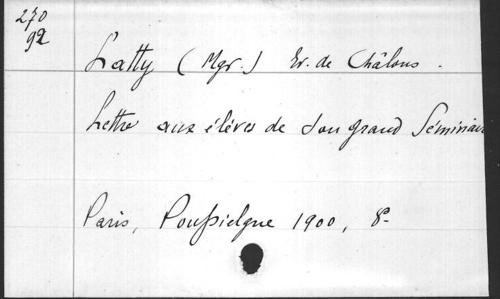 270
92
Latty (Mgr.) Ev. de Châlons.
Lettre aux élèves de son grand Séminair
Paris, Poussielgue 1900, 8°